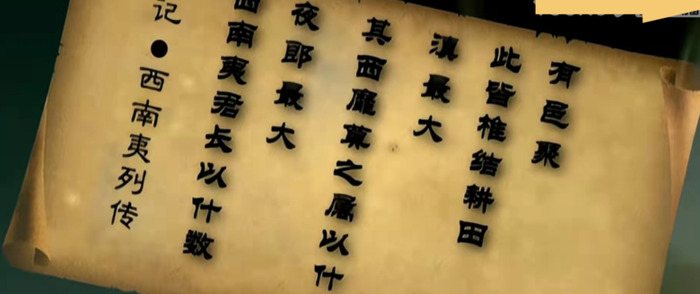 记●西南夷列传
西南夷君长以什数
夜郎最大
其西靡莫之属以什
滇最大
此皆椎结耕田
有邑聚